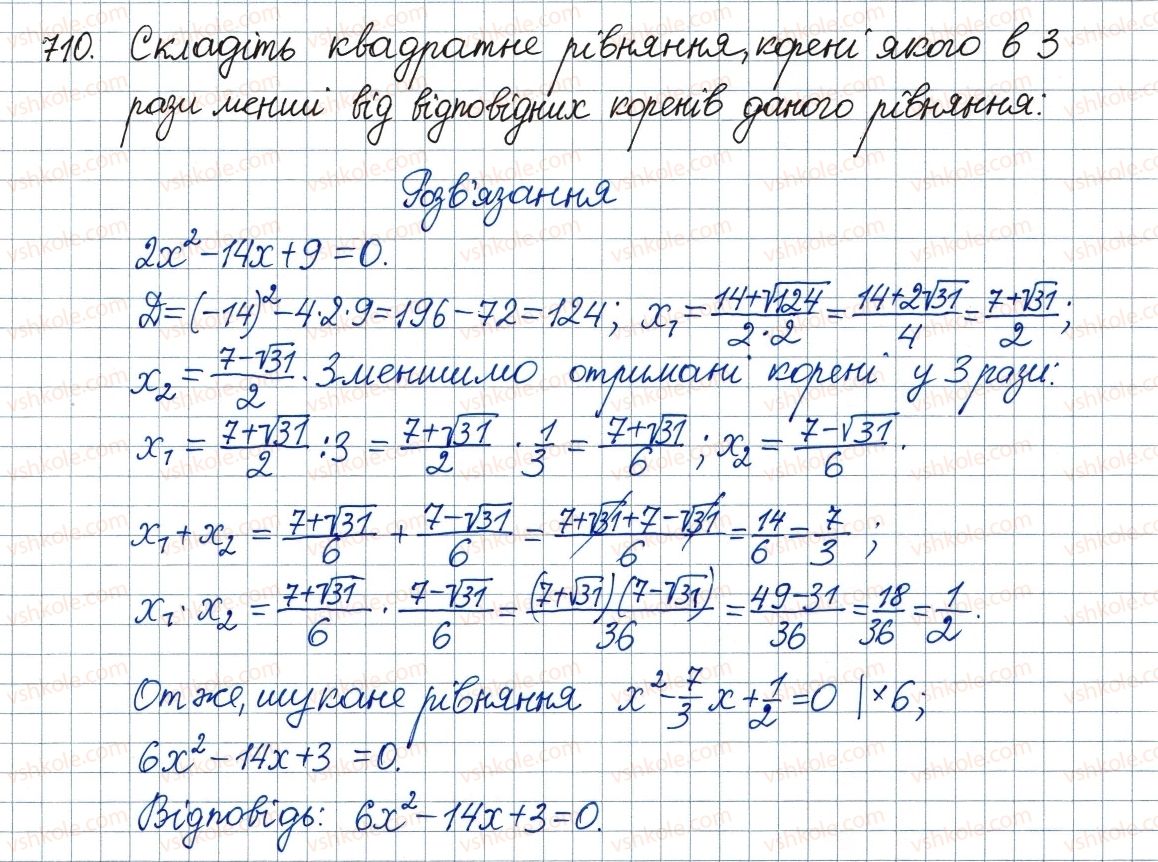 710. Складіть квадратне рівняння, корені якого в 3
рази менші від відповідних коренів даного рівняння:
Розв'язання
2x² - 14x + 9 = 0.
Д = (-14)² - 4·2·9 = 196 - 72 = 124; x₁ = (14+√124)/(2·2) = (14+2√31)/4 = (7+√31)/2;
x₂ = (7-√31)/2. Зменшимо отримані корені у 3 рази:
x₁ = (7+√31)/2 : 3 = (7+√31)/2 · 1/3 = (7+√31)/6; x₂ = (7-√31)/6.
x₁ + x₂ = (7+√31)/6 + (7-√31)/6 = (7+√31+7-√31)/6 = 14/6 = 7/3;
x₁ · x₂ = (7+√31)/6 · (7-√31)/6 = ((7+√31)(7-√31))/36 = (49-31)/36 = 18/36 = 1/2.
Отже, шукане рівняння x² - 7/3 x + 1/2 = 0 |×6;
6x² - 14x + 3 = 0.
Відповідь: 6x² - 14x + 3 = 0.